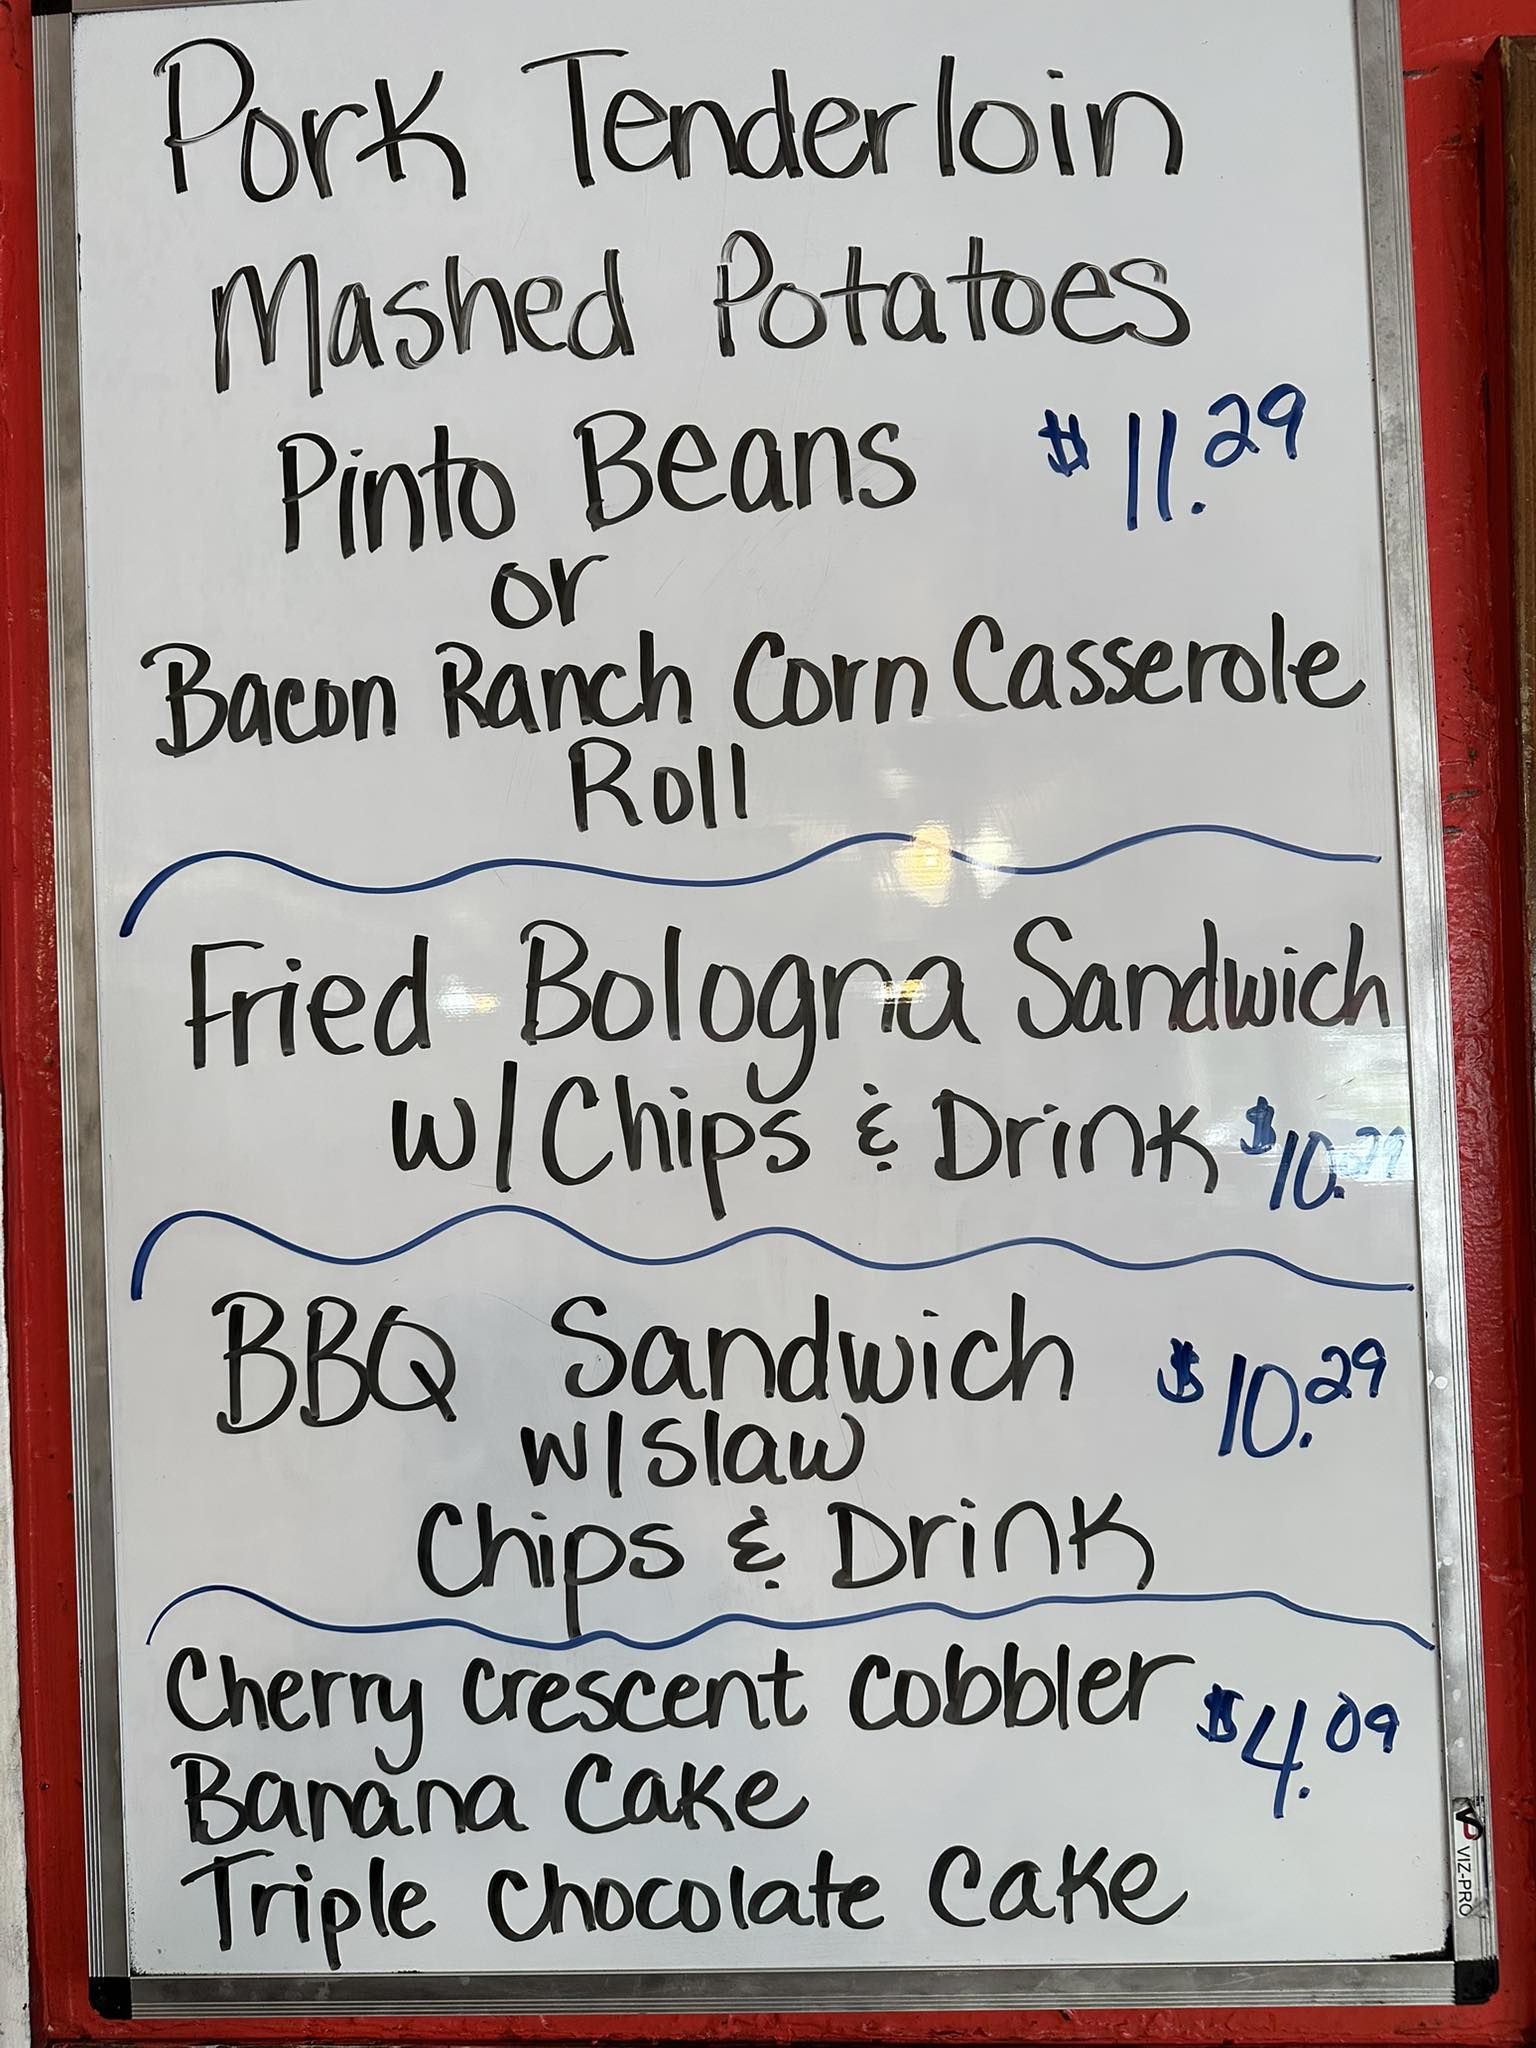 Pork Tenderloin
Mashed Potatoes
Pinto Beans $11.29
or
Bacon Ranch Corn Casserole
Roll
Fried Bologna Sandwich
w/Chips & Drink $10.29
BBQ Sandwich $10.29
w/slaw
Chips & Drink
Cherry Crescent Cobbler $4.09
Banana Cake
Triple Chocolate Cake
VIZ-PRO